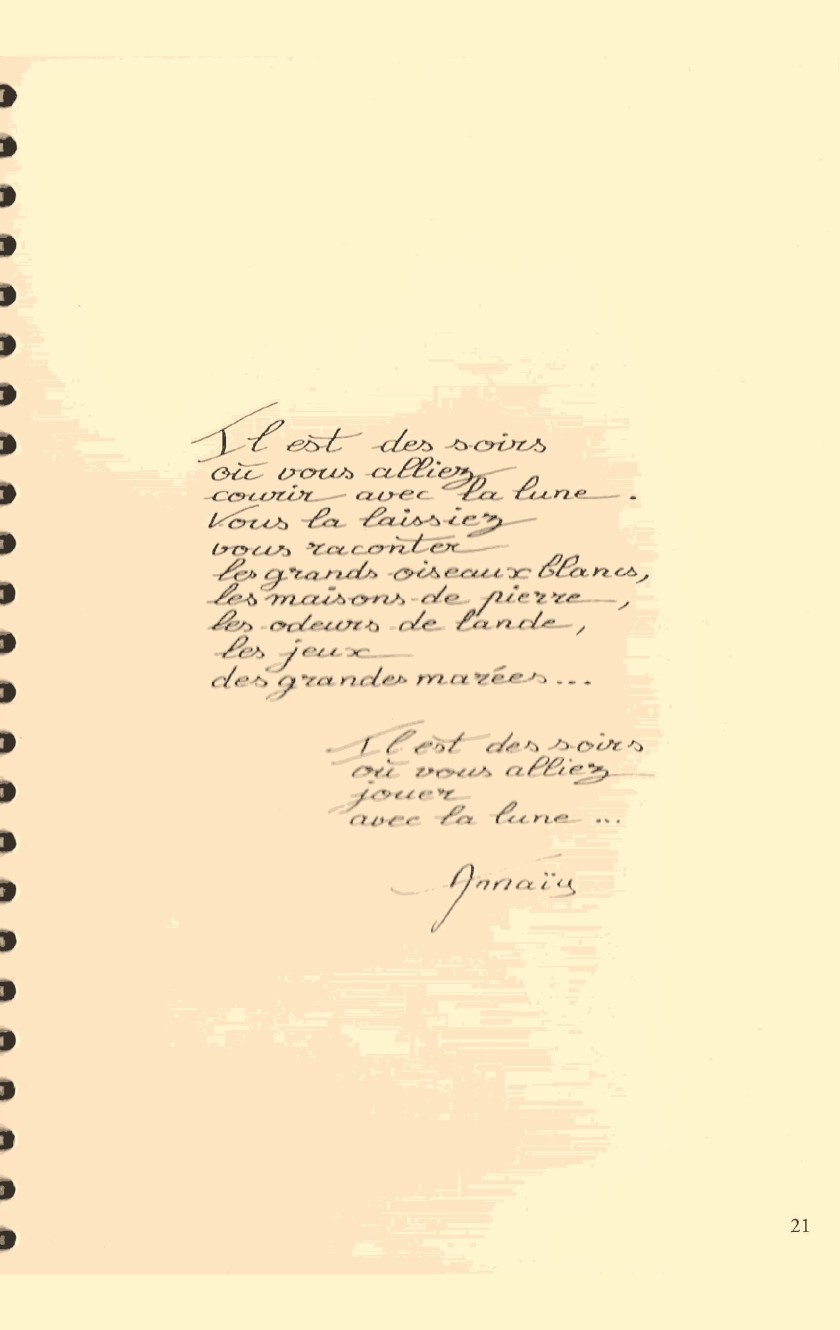 Il est des soirs
où vous alliez
courir avec la lune.
Vous la laissiez
vous raconter
les grands oiseaux blancs,
les maisons de pierre,
les odeurs de lande,
les jeux
des grandes marées...
Il est des soirs
où vous alliez
jouer
avec la lune...
Annaïg
21